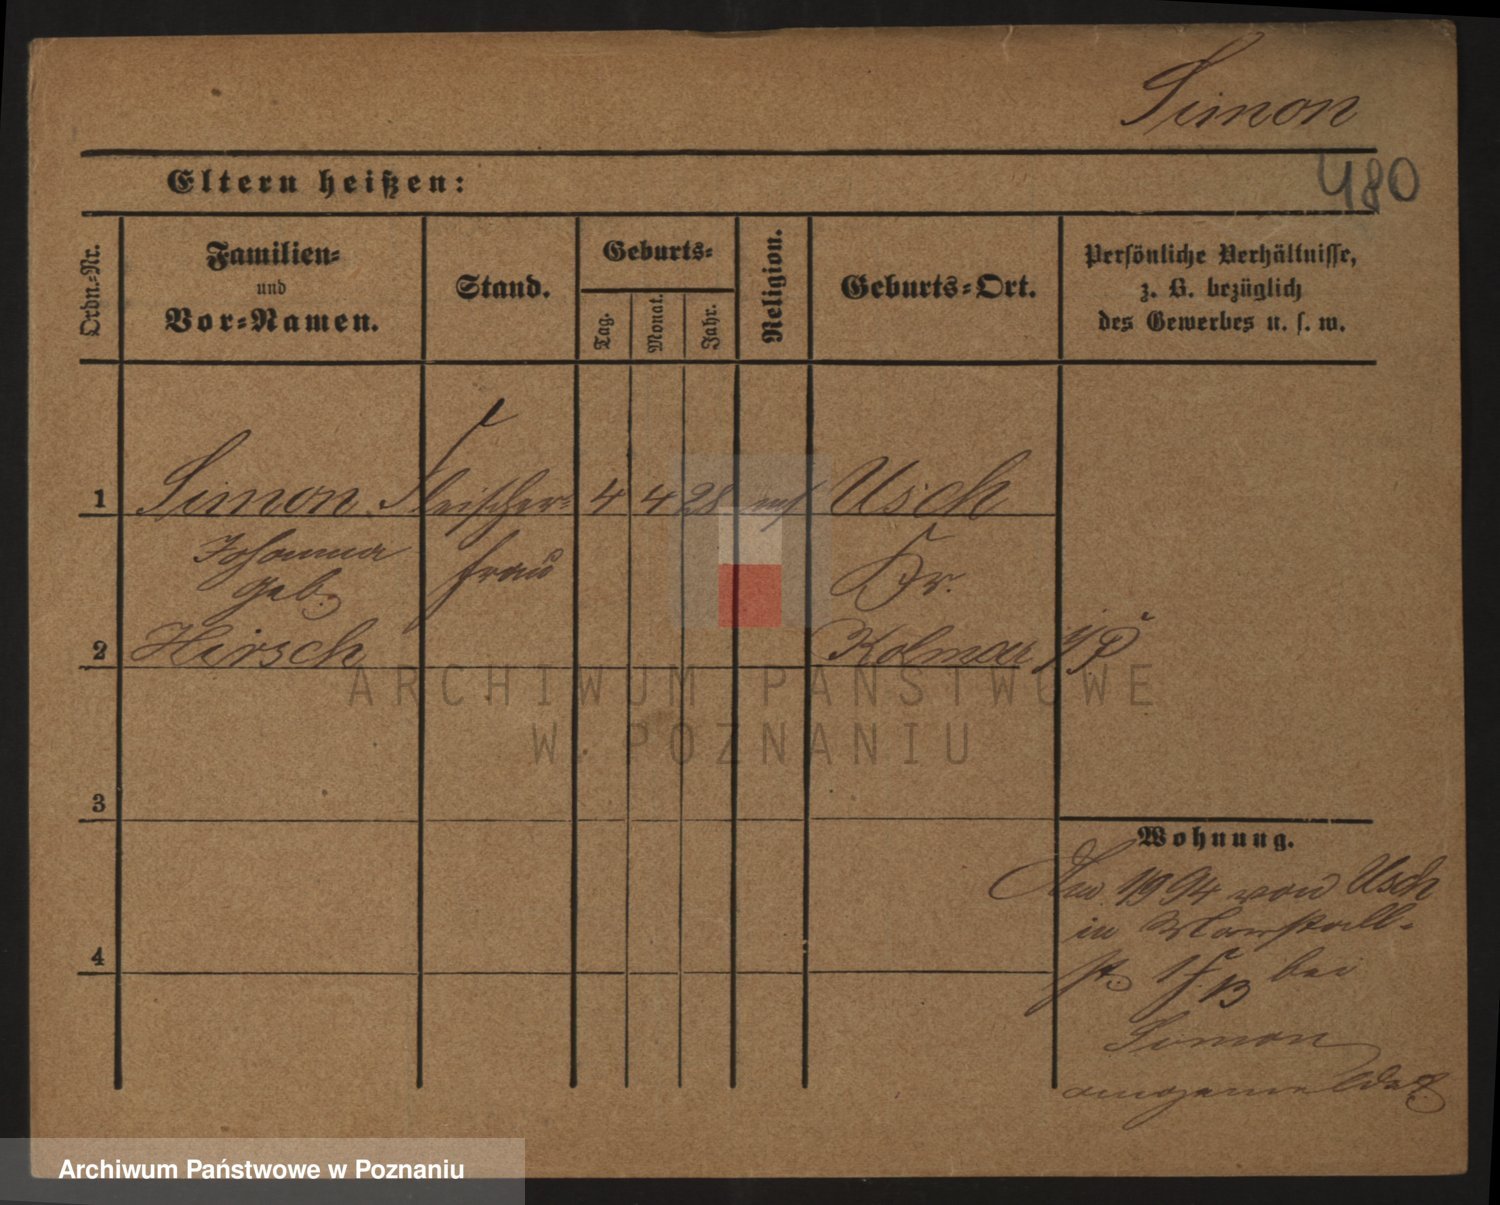 Simon
480
Eltern heißen:
Ordn.-Nr.
Familien-
und
Vor-Namen.
Stand.
Geburts-
Tag.
Monat.
Jahr.
Religion.
Geburts-Ort.
Persönliche Verhältnisse,
z. B. bezüglich
des Gewerbes u. s. w.
1 Simon Fleischer- 4 4 28 Usch
Johanna frau Kr.
geb.
2 Hirsch Kolmar i/P
3
4
Wohnung.
94 von Usch
in Marstall-
st. bei
Simon
angemeldet
ARCHIWUM PAŃSTWOWE
W POZNANIU
Archiwum Państwowe w Poznaniu